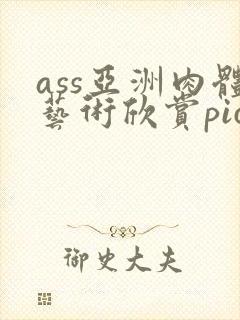 ass亞洲肉體
藝術欣賞pic
御史大夫